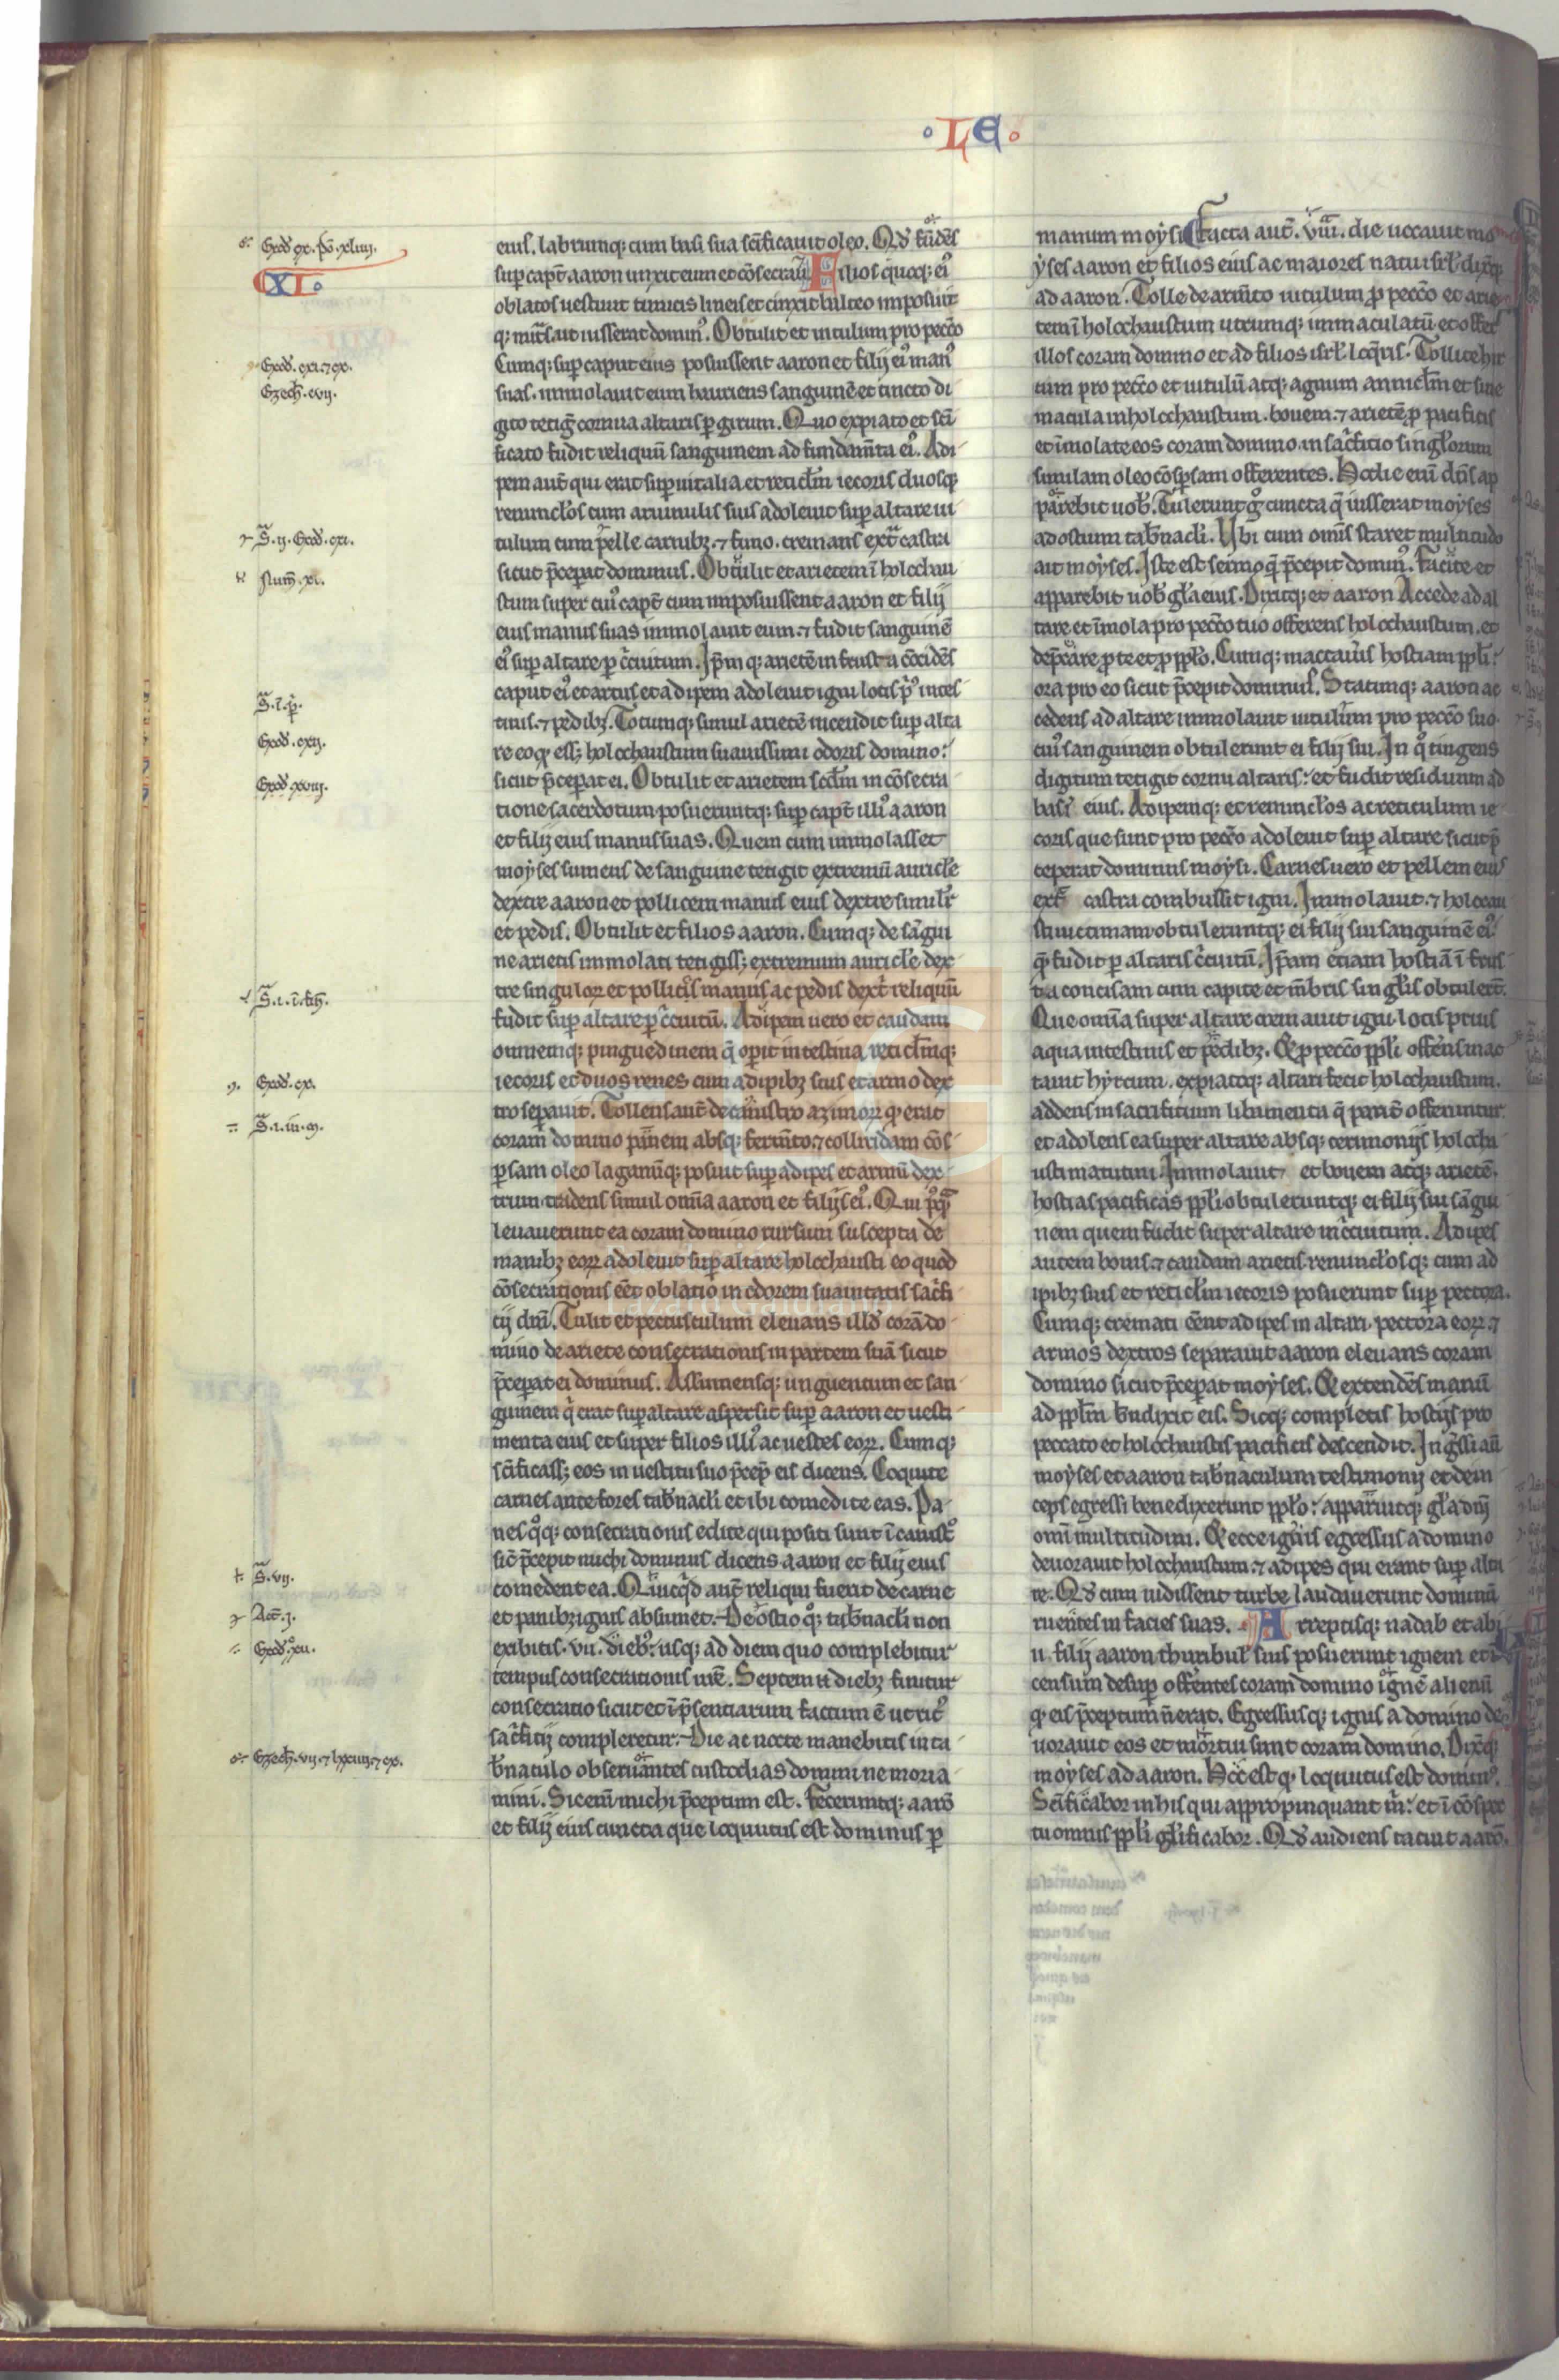 LE
eius. labrumq; cum basi sua sc̄ificauit oleo. Qd̄ fūdēs
sup̱ capt̄ aaron unxit eum et cōsecrauͥ Filios quoq; eiꝰ
oblatos uestiuit tunicis lineis et cinxit balteo imposuit
q; mit̄s ut iusserat dominꝰ. Obtulit et uitulum pro pecc̄o
Cumq; sup̱ caput eius posuissent aaron et filij eiꝰ manꝰ
suas. immolauit eum hauriens sanguinē et tincto di
gito tetiḡ cornua altaris p̱ girum. Quo expiato et sc̄i
ficato fudit reliquū sanguinem ad fundam̄ta eiꝰ. Adi
pem aut̄ qui erat sup̱ uitalia et reticl̄m iecoris duosq;
renuncl̄os cum aruinulis suis adoleuit sup̱ altare ui
tulum cum pelle carnibꝫ ⁊ fimo. cremans ext̄ castra
sicut p̄ceperat dominus. Obtulit et arietem ī holochau
stum super cuiꝰ capt̄ cum imposuissent aaron et filij
eius manus suas immolauit eum. ⁊ fudit sanguinē
eiꝰ sup̱ altare p̱ c̄cuitum. Ip̄m q; arietē in frusta cōcidēs
caput eiꝰ et artus et adipem adoleuit igni lotis pͥꝰ intes
tinis. ⁊ pedibꝫ. Totumq; simul arietē incendit sup̱ alta
re eo qͦ ess; holochaustum suauissimi odoris domino:
sicut p̄ceperat ei. Obtulit et arietem scd̄m in cōsecra
tione sacerdotum posueruntq; sup̱ capt̄ illiꝰ aaron
et filij eius manus suas. Quem cum immolasset
moyses sumens de sanguine tetigit extremū auricl̄e
dextre aaron et pollicem manus eius dextre similr̄
et pedis. Obtulit et filios aaron. Cumq; de sāgui
ne arietis immolati tetigiss; extremum auricl̄e dex
tre singuloꝝ et pollicis manus ac pedis dext̄ reliquū
fudit sup̱ altare p̱ c̄cuitū. Adipem uero et caudam
omnemq; pinguedinem q̄ operit intestina reticl̄mq;
iecoris et duos renes cum adipibꝫ suis et armo dex
tro separauit. Tollens aut̄ de canistro azimoꝝ qͦ erat
coram domino panem absq; ferm̄to. ⁊ colliridam cōs
p̱sam oleo laganūq; posuit sup̱ adipes et armū dex
trum tradens simul om̄ia aaron et filijs eiꝰ. Qui pꝰq̄
leuauerunt ea coram domino rursum suscepta de
manibꝫ eoꝝ adoleuit sup̱ altare holochausti eo quod
cōsecrationis eēt oblatio in odorem suauitatis sac̄fi
cij dn̄i. Tulit et pectusculum eleuans illd̄ corā do
mino de ariete consecrationis in partem suā sicut
p̄ceperat ei dominus. Assumensq; unguentum et san
guinem qͥ erat sup̱ altare aspersit sup̱ aaron et uesti
menta eius et super filios illiꝰ ac uestes eoꝝ. Cumq;
sc̄ificass; eos in uestitu suo p̄cep̱ eis dicens. Coquite
carnes ante fores tab̄nacl̄i et ibi comedite eas. Pa
nes qͦq; consecrationis edite qui positi sunt ī canistͦ
sic̄ p̄cepit michi dominus dicens aaron et filij eius
comedent ea. Quicq̇d aut̄ reliqui fuerit de carne
et panibꝫ ignis absumet. De ostio qͦ; tab̄nacl̄i non
exibitis. vii. diebꝰ. usq; ad diem quo complebitur
tempus consecrationis ur̄e. Septem n̄ diebꝫ finitur
consecratio sicut et ī p̄sentiarum factum ē ut ritꝰ
sac̄ficij compleretur. Die ac nocte manebitis in ta
b̄naculo obseruantes custodias domini ne moria
mini. Sic enī michi p̄ceptum est. Feceruntq; aarō
et filij eius cuncta que loquutus est dominus p̱
manum moysi Facta aut̄. viiiͣ. die uocauit mo
yses aaron et filios eius ac maiores natu isrl̄ dixitq;
ad aaron. Tolle de arm̄to uitulum p̱ pecc̄o et arie
tem ī holochaustum utrumq; immaculatū et offer
illos coram domino et ad filios isrl̄ loq̄ris. Tollite hir
cum pro pecc̄o et uitulū atq; agnum annicl̄m et sine
macula in holochaustum. bouem. ⁊ arietē p̱ pacificis
et īmolate eos coram domino in sac̄ficio singl̄orum
similam oleo cōsp̱sam offerentes. Hodie enī dn̄s ap
parebit uob̄. Tulerunt gͦ cuncta q̄ iusserat moyses
ad ostium tab̄nacl̄i. Ubi cum om̄is staret multitudo
ait moyses. Iste est sermo q̄ p̄cepit dominꝰ. Facite et
apparebit uob̄ gl̄a eius. Dixitq; et aaron Accede ad al
tare et īmola pro pecc̄o tuo offerens holochaustum. et
dep̄care p̱ te et p̱ ppl̄o. Cumq; mactauis̄ hostiam ppl̄i:
ora pro eo sicut p̄cepit dominus. Statimq; aaron ac
cedens ad altare immolauit uitulum pro pecc̄o suo
cuiꝰ sanguinem obtulerunt ei filij sui. In qͦ tingens
digitum tetigit cornu altaris: et fudit residuum ad
basī eius. Adipemq; et renuncl̄os ac reticulum ie
coris que sunt pro pecc̄o adoleuit sup̱ altare sicut p̄
ceperat dominus moysi. Carnes uero et pellem eius
ext̄ castra combussit igni. Immolauit. ⁊ holocau
sti uictimam obtuleruntq; ei filij sui sanguinē eiꝰ
q̄ fudit p̱ altaris c̄cuitū. Ip̄am etiam hostiā ī frus
ta concisam cum capite et m̄bris singl̄is obtuler̄t.
Que om̄ia super altare cremauit igni. lotis prius
aqua intestinis et pedibꝫ. Et p̱ pecc̄o ppl̄i offerēs mac
tauit hyrcum. expiatoq; altari fecit holochaustum.
addens in sacrificium libamenta q̄ parit̄ offeruntur
et adolens ea super altare absq; cerimonijs holocha
usti matutini. Immolauit et bouem atq; arietē.
hostias pacificas ppl̄i obtuleruntq; ei filij sui sāgui
nem quem fudit super altare in c̄cuitum. Adipes
autem bouis. ⁊ caudam arietis renuncl̄osq; cum ad
ipibꝫ suis et reticl̄m iecoris posuerunt sup̱ pectora.
Cumq; cremati eēnt adipes in altari. pectora eoꝝ. ⁊
armos dextros separauit aaron eleuans coram
domino sicut p̄ceperat moyses. Et extendēs manū
ad ppl̄m b̄ndixit eis. Sicq; completis hostijs pro
peccato et holochaustis pacificis descendit. Ingͤssi aū
moyses et aaron tab̄naculum testimonij et dein
ceps egressi benedixerunt ppl̄o: apparuitq; gl̄a dn̄i
omī multitudini. Et ecce ignis egressus a domino
deuorauit holochaustum. ⁊ adipes qui erant sup̱ alta
re. Qd̄ cum uidissent turbe laudauerunt dominū
ruentes in facies suas. Arreptisq; nadab et abi
u filij aaron thuribul̄ suis posuerunt ignem et i
censum desup̱ offerētes coram domino ignē alienū
qͦ eis p̄ceptum n̄ erat. Egressusq; ignis a domino de
uorauit eos et mortui sunt coram domino. Dixitq;
moyses ad aaron. Hoc est qͦ loquutus est dominꝰ.
Sc̄ificabor in his qui appropinquant m̄: et ī cōspec
tu omnis ppl̄i gl̄ificabor. Qd̄ audiens tacuit aarō.
XI
Exod̄. xxi. ⁊ xx.
Ezech̄. xvij.
Num̄. xi.
Exod̄. xxij.
Exod̄. xxviij.
Exod̄. xx.
S̄. vij.
Act̄. j.